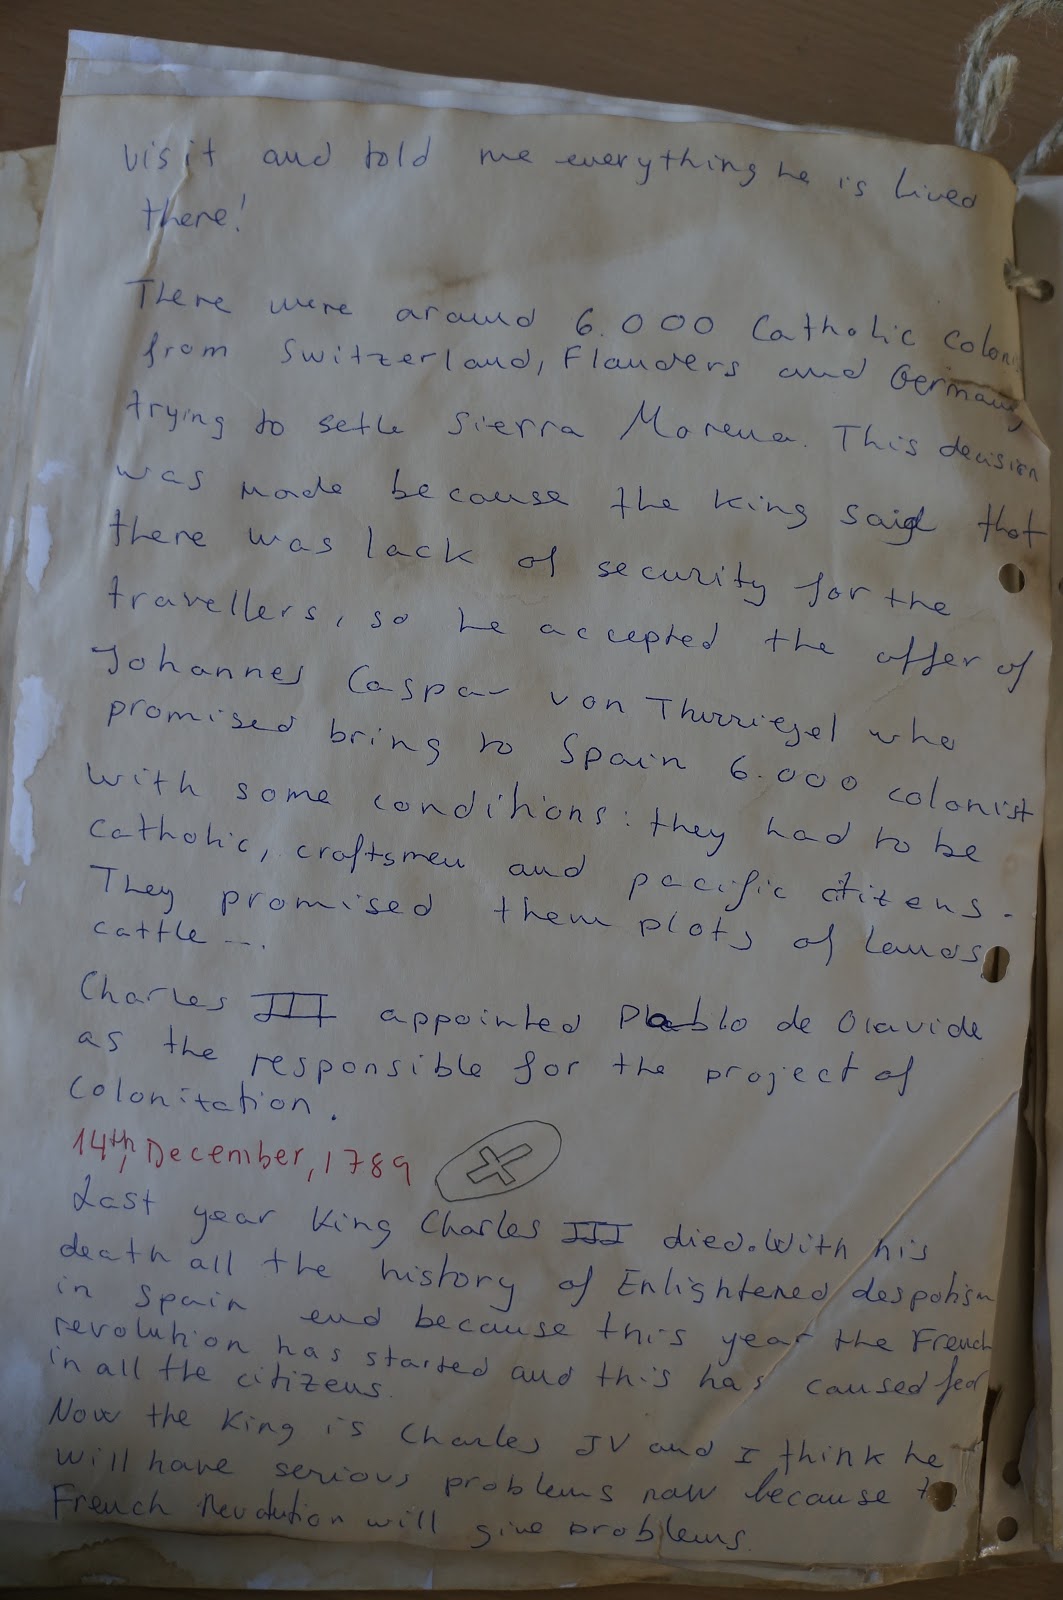 visit and told me everything he is lived
there!
There were around 6.000 Catholic
from Switzerland, Flanders and Germany
trying to setle Sierra Morena. This decision
was made because the King said that
there was lack of security for the
travellers, so he accepted the offer of
Johannes Caspar von Thürriegel who
promised bring to Spain 6.000 colonist
with some conditions: they had to be
catholic, craftsmen and pacific citizens.
They promised them plots of lands,
cattle ...
Charles III appointed Pablo de Olavide
as the responsible for the project of
colonitation.
14th, December, 1789
Last year King Charles III died. With his
death all the history of Enlightened despotism
in Spain end because this year the French
revolution has started and this has caused fear
in all the citizens.
Now the King is Charles IV and I think he
will have serious problems now because
French Revolution will give problems.